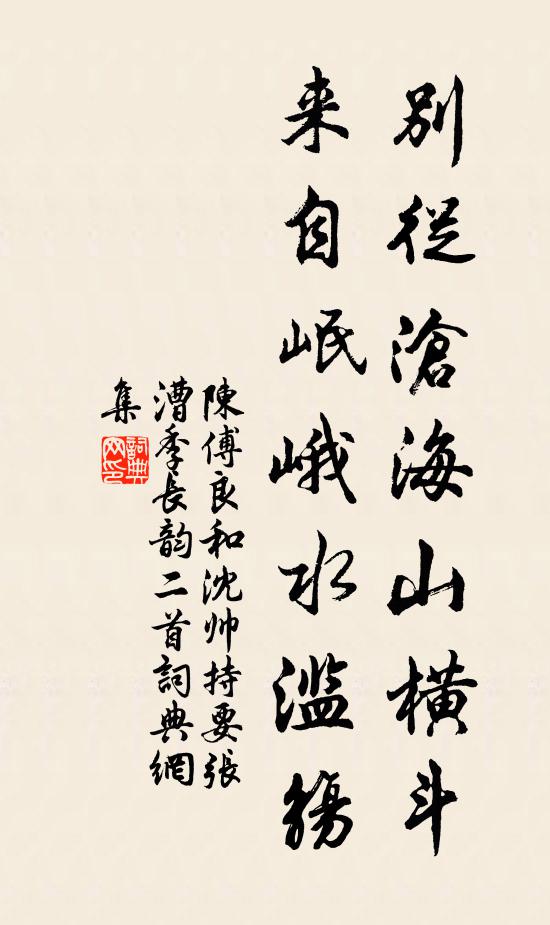 別從滄海山橫斗
来自岷峨水滥觴
陳傅良和沈帅持要張
漕季長韵二首詞典網
集
詞典
网印